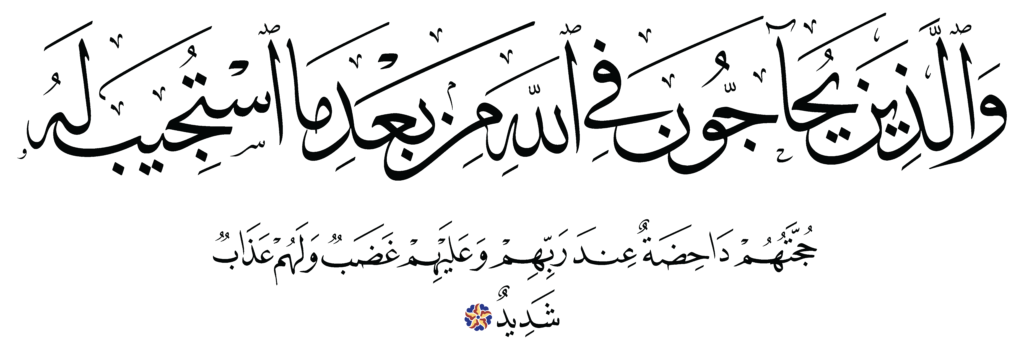 وَٱلَّذِينَ يُحَآجُّونَ فِي ٱللَّهِ مِنۢ بَعْدِ مَا ٱسْتُجِيبَ لَهُۥ
حُجَّتُهُمْ دَاحِضَةٌ عِندَ رَبِّهِمْ وَعَلَيْهِمْ غَضَبٌ وَلَهُمْ عَذَابٌ
شَدِيدٌ